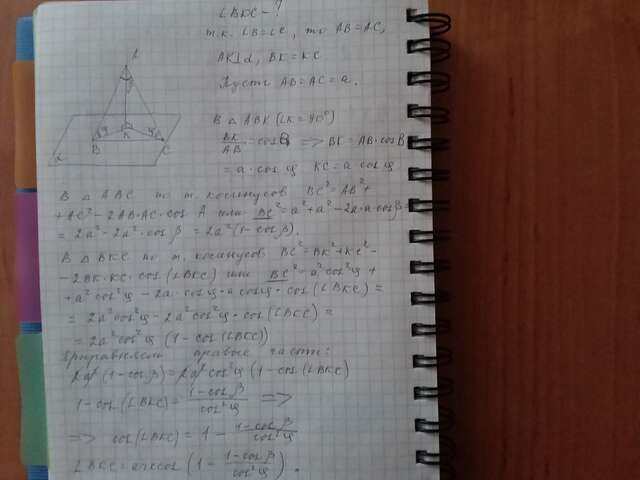 ∠BKC - ?
т.к. ∠B=∠C, то AB=AC,
AK⊥α, BK=KC
Пусть AB=AC=a.
A
K
B
C
α
В △ ABK (∠K=90°)
BK/AB = cos B => BK=AB·cosB
= a·cos φ KC=a cos φ
В △ ABC по т. косинусов BC²=AB²+
+AC²-2AB·AC·cos A или BC²=a²+a²-2a·a·cos β=
= 2a²-2a²·cos β = 2a²(1-cos β).
В △ BKC по т. косинусов BC²=BK²+KC²-
-2BK·KC·cos(∠BKC) или BC²=a²cos²φ+
+a²cos²φ-2a·cos φ·a cos φ·cos(∠BKC)=
= 2a²cos²φ-2a²cos²φ·cos(∠BKC)=
= 2a²cos²φ (1-cos(∠BKC))
приравняем правые части:
2a²(1-cos β)=2a²cos²φ (1-cos(∠BKC)
1-cos(∠BKC)= (1-cos β)/(cos²φ) =>
=> cos(∠BKC)=1- (1-cos β)/(cos²φ)
∠BKC=arccos(1- (1-cos β)/(cos²φ)).